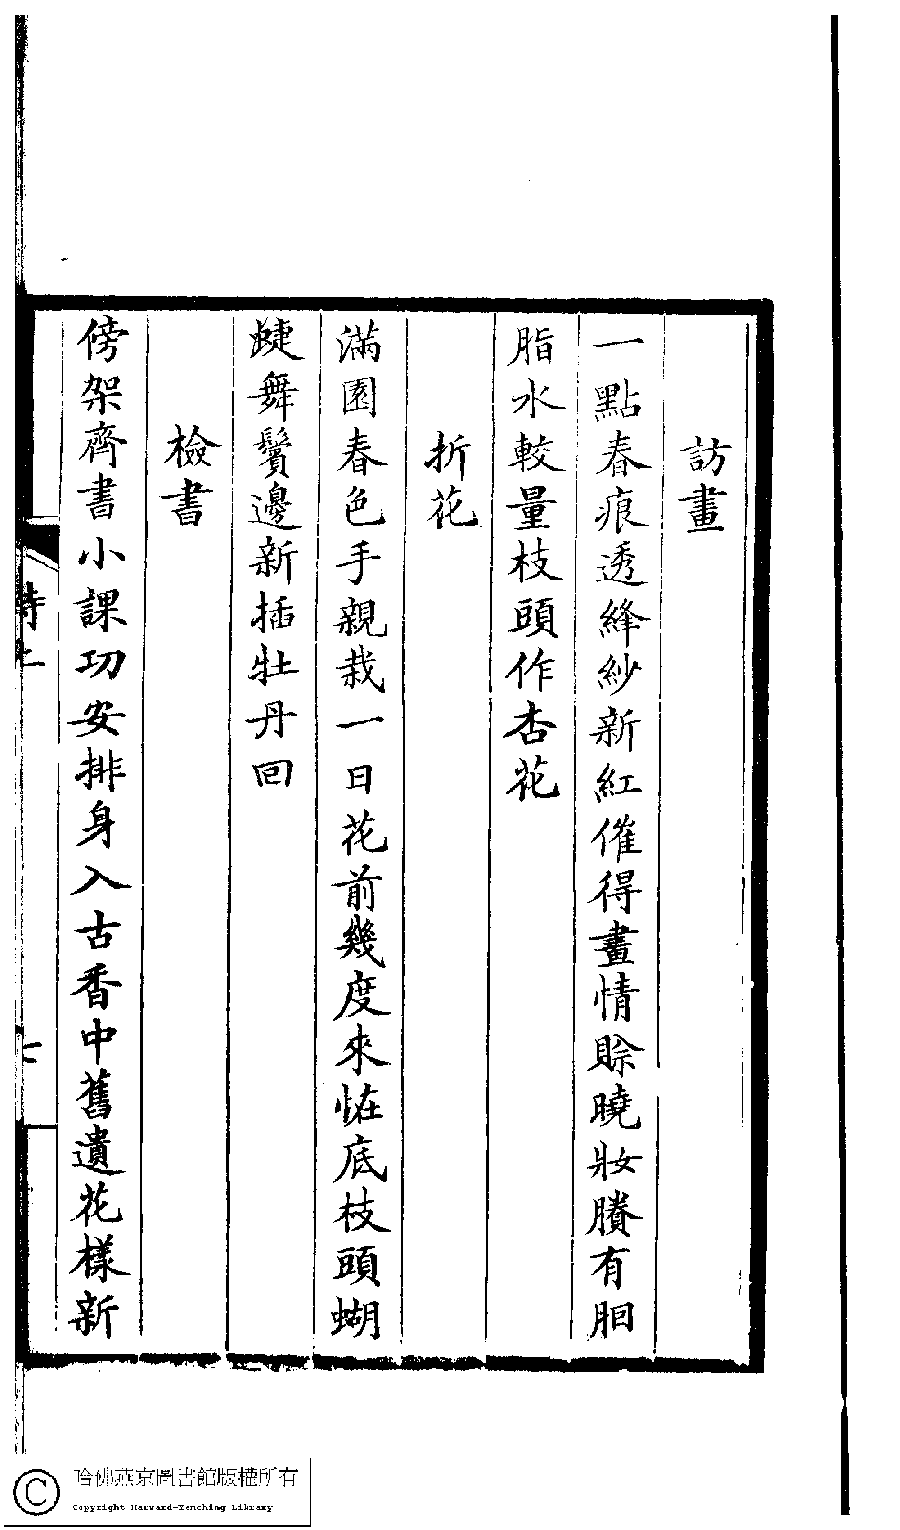 訪畫
一點春痕透絳紗新紅催得畫情賒曉妝賸有胭
脂水較量枝頭作杏花
折花
滿園春色手親栽一日花前幾度來恠底枝頭蝴
蜨舞鬢邊新插牡丹回
檢書
傍架齊書小課功安排身入古香中舊遺花樣新
詩上
七
哈佛燕京圖書館版權所有
Copyright Harvard-Yenching Library